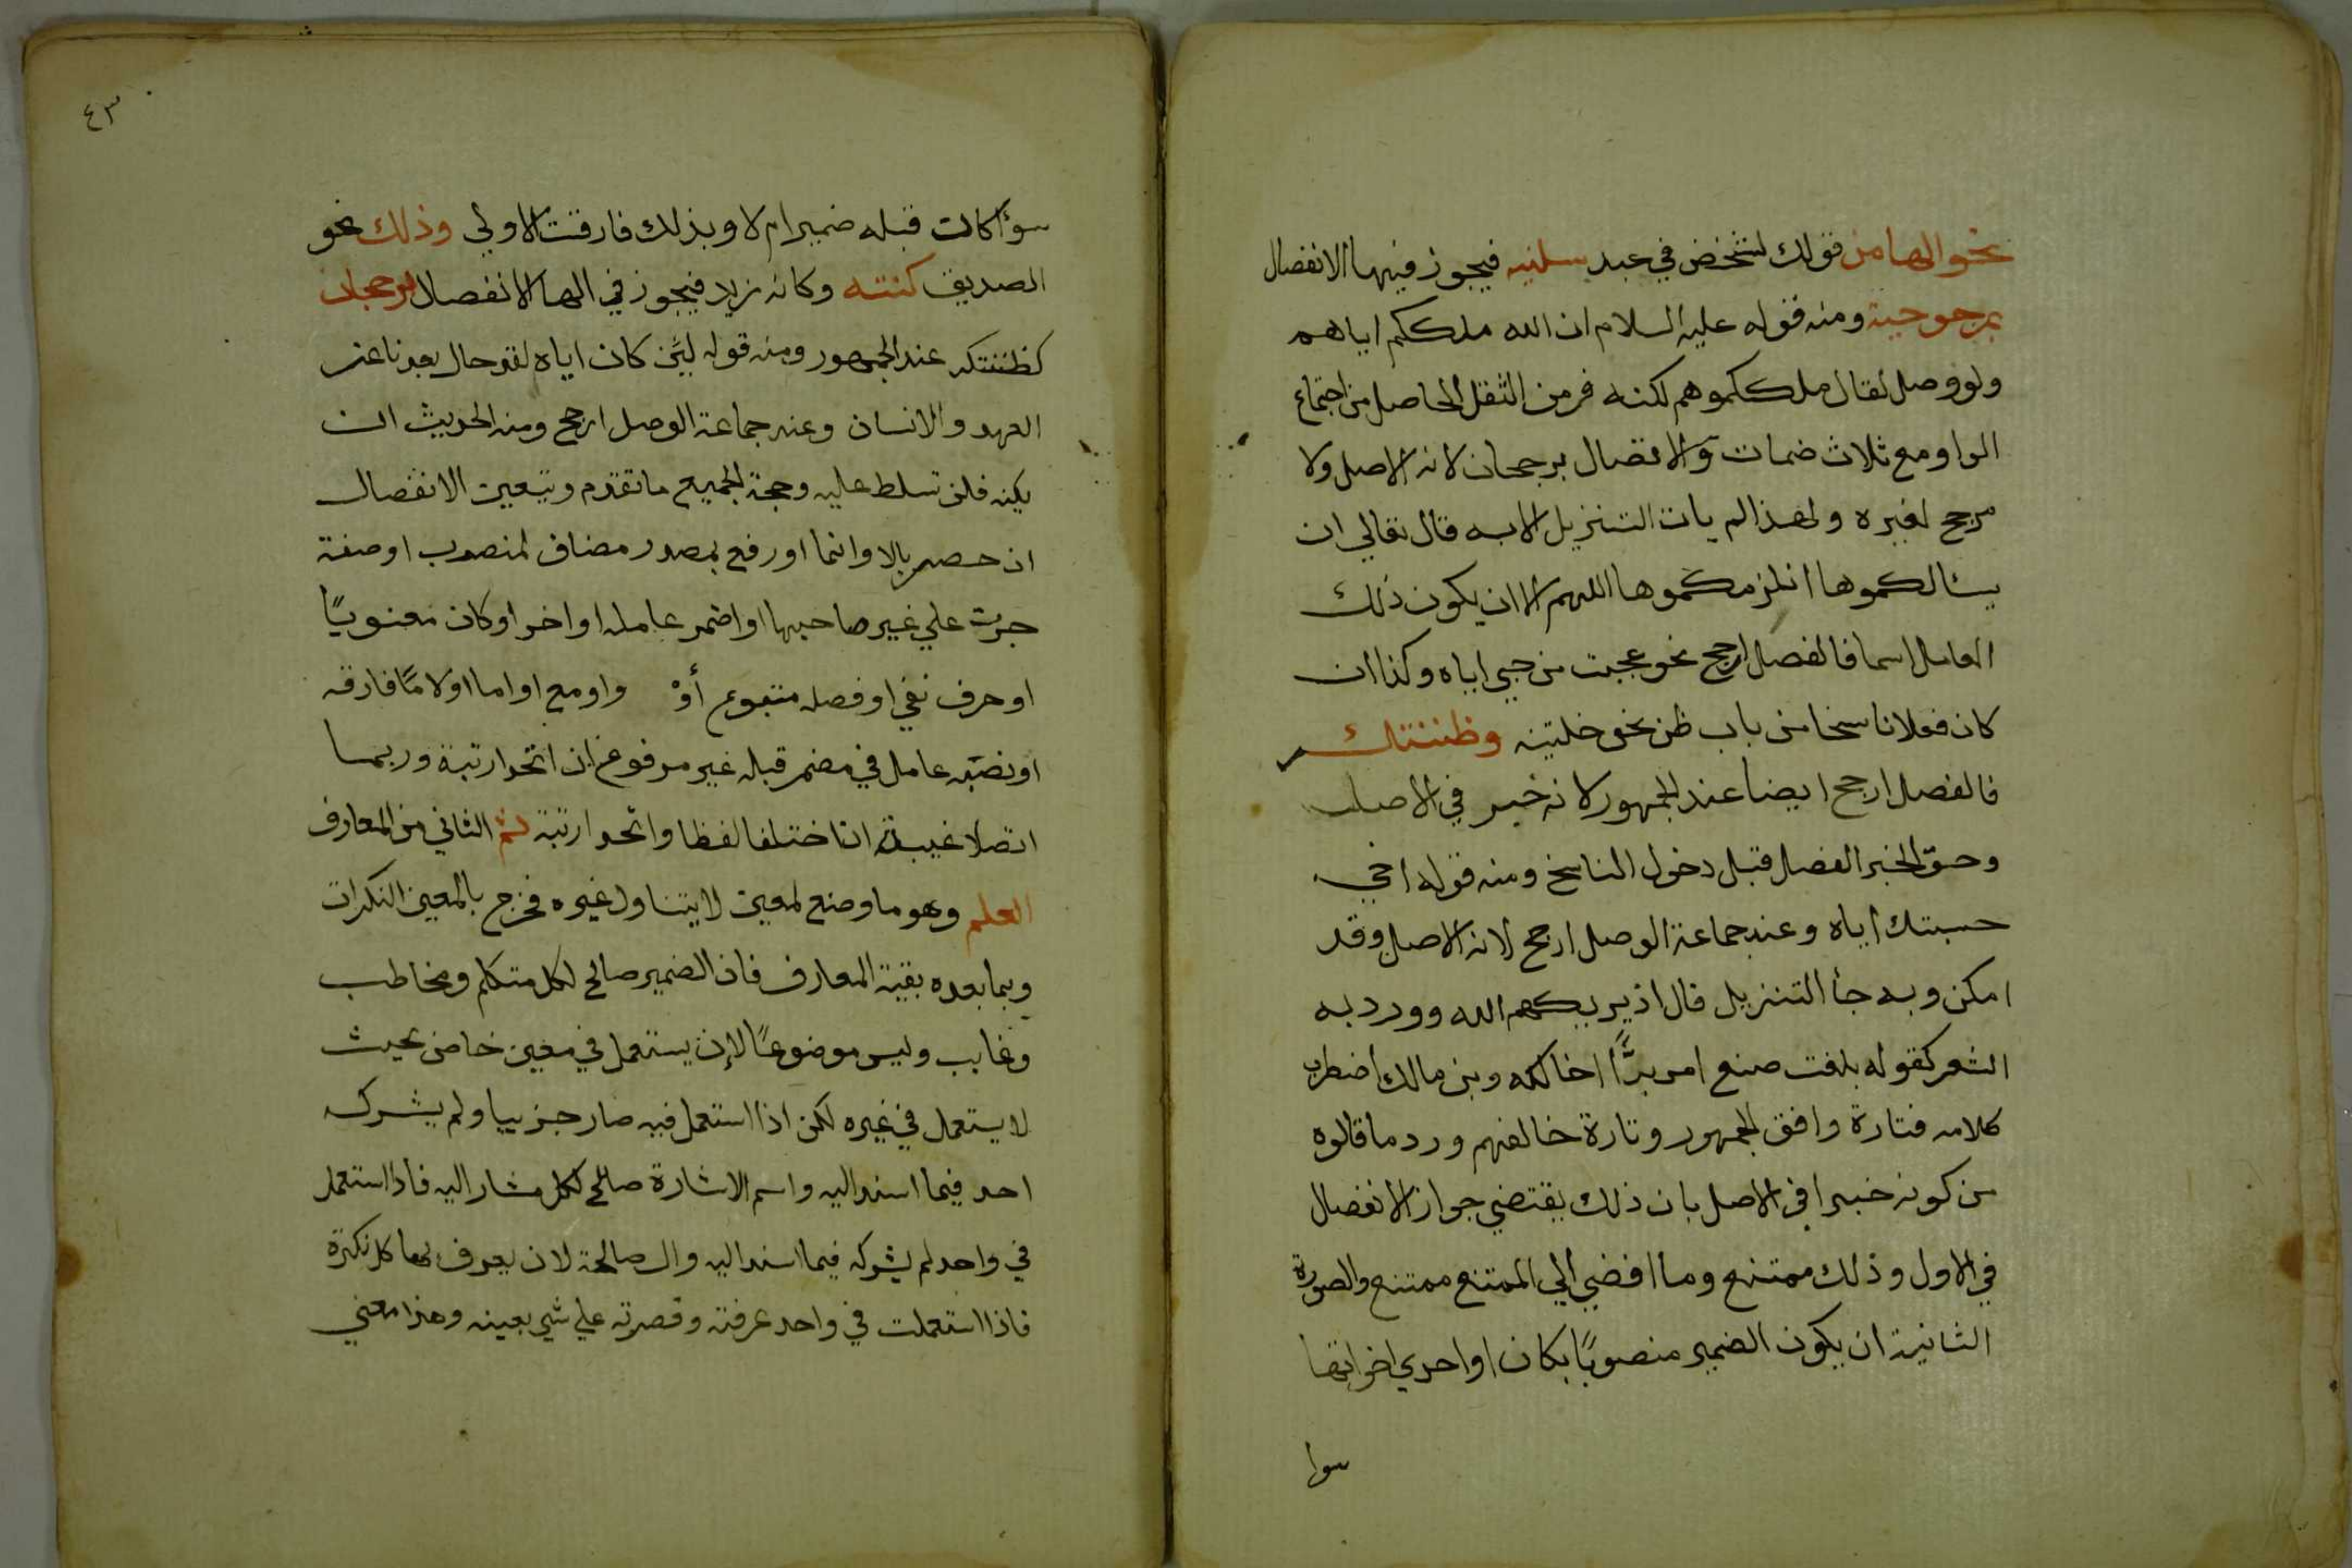 نحو الها من قولك لشخص في عبد سلنيه فيجوز فيها الانفصال
بمرجوحية ومنه قوله عليه السلام ان الله ملككم اياهم
ولو وصل لقال ملككموهم لكنه فر من الثقل الحاصل من اجتماع
الواو مع ثلاث ضمات والاتصال برجحان لانه الاصل ولا
مرجح لغيره ولهذا لم يات التنزيل الا به قال تعالي ان
يسالكموها انلزمكموها اللهم الا ان يكون ذلك
العامل اسما فالفصل ارجح نحو عجبت من حبي اياه وكذا ان
كان فعلا ناسخا من باب ظن نحو خلتينه وظننتك
فالفصل ارجح ايضا عند الجمهور لانه خبر في الاصل
وحق الخبر الفصل قبل دخول الناسخ ومنه قوله اخي
حسبتك اياه وعند جماعة الوصل ارجح لانه الاصل وقد
امكن وبه جأ التنزيل قال اذ يريكهم الله وورد به
الشعر كقوله بلغت صنع امر برًّا اخالكه وبن مالك اضطرب
كلامه فتارة وافق الجمهور وتارة خالفهم ورد ما قالوه
من كونه خبرا في الاصل بان ذلك يقتضي جواز الانفصال
في الاول وذلك ممتنع وما افضي الي الممتنع ممتنع والصورة
الثانية ان يكون الضمير منصوبًا بكان او احدي اخواتها
سوا
٤٣
سوأ كان قبله ضمير ام لا وبذلك فارقت الاولي وذلك نحو
الصديق كنته وكانه زيد فيجوز في الها الانفصال برجحان
كظننتكه عند الجمهور ومنه قوله لين كان اياه لقد حال بعدنا عن
العهد والانسان وعند جماعة الوصل ارجح ومنه الحديث ان
يكنه فلن تسلط عليه وحجة الجميع ما تقدم وتتعين الانفصال
ان حصر بالا وانما او رفع بمصدر مضاف لمنصوب او صفة
جرت علي غير صاحبها او اضمر عامله او اخر او كان معنويًا
او حرف نفي او فصله متبوع أوْ واو مع او اما او لامًا فارقة
او نصبه عامل في مضمر قبله غير مرفوع ان اتحدا رتبة وربما
اتصلا غيبة ان اختلفا لفظا واتحدا رتبة ثم الثاني من المعارف
العلم وهو ما وضع لمعين لا يتناول غيره فخرج بالمعين النكرات
وبما بعده بقية المعارف فان الضمير صالح لكل متكلم ومخاطب
وغايب وليس موضوعًا لان يستعمل في معين خاص بحيث
لا يستعمل في غيره لكن اذا استعمل فيه صار جزييا ولم يشركه
احد فيما اسند اليه واسم الاشارة صالح لكل مشار اليه فاذا استعمل
في واحد لم يشركه فيما اسند اليه وال صالحة لان يعرف بها كل نكرة
فاذا استعملت في واحد عرفته وقصرته علي شي بعينه وهذا معني